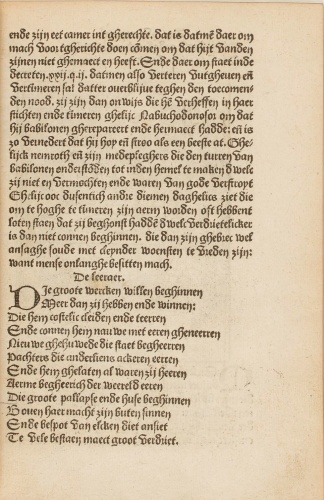 ende zijn eet tamer int gherechte. dat is datmē daer om
mach voortgherichte doen comen om dat hijt vanden
zijnen niet ghemaect en heeft. Ende daer om staet inde
decreten. xxij. q. ij. datmen also verteren vutgheuen eñ
vertimeren sal datter ouerblijue teghen den toecomen-
den nood. zij zijn dan onwijs die hē verheffen in haer
stichten ende timeren ghelijc Nabuchodonosor om dat
hij babilonen ghereparreert ende hermaect hadde: eñ is
zo vernedert dat hij hoy eñ stroo als een beeste at. Ghe-
lijck nemroth eñ zijn medepleghers die den turren van
babilonen onderstōden tot inden hemel te maken d'wele
zij niet en vermochten ende waren van gode verstroyt
Ghelijc ooc dusentich andre diemen daghelics ziet die
om te hoghe te timeren zijn aerm worden oft hebbent
loten staen dat zij beghonst haddē d'welc verdrietelicker
is dan niet connen beghinnen. die dan zijn ghebrec wel
ansaghe soude met cleynder woensten te vreden zijn:
want mense onlanghe besitten mach.
De leeraer.
Die groote wercken willen beghinnen
Meer dan zij hebben ende winnen:
Die hem costelic cleiden ende teerren
Ende connen hem nauwe met eeren gheneerren
Nieu we ghehuwede die staet begheerren
Pachters die anderliens ackeren eerren
Ende hem ghelaten al waren zij heeren
Aerme begheerich der weereld eeren
Die groote pallayse ende huse beghinnen
Bouen haer macht zijn buten sinnen
Ende bespot van elcken diet ansiet
Te vele bestaen maect groot verdriet.